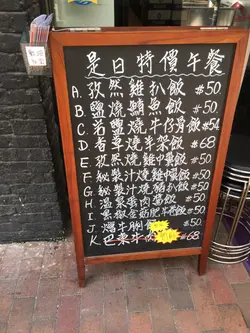 是日特價午餐
A. 孜然雞扒飯 #50
B. 鹽燒鯖魚飯 #50
C. 岩鹽燒牛仔骨飯 #54
D. 香草燒羊架飯 #68
E. 孜然燒雞中翼飯 #50
F. 秘製汁燒雞中翼飯 #50
G. 秘製汁燒豬扒飯 #50
H. 溫泉蛋肉醬飯 #50
I. 黑椒金菇肥牛飯 #50
J. 燒牛脷飯
K. 巴東牛 #68